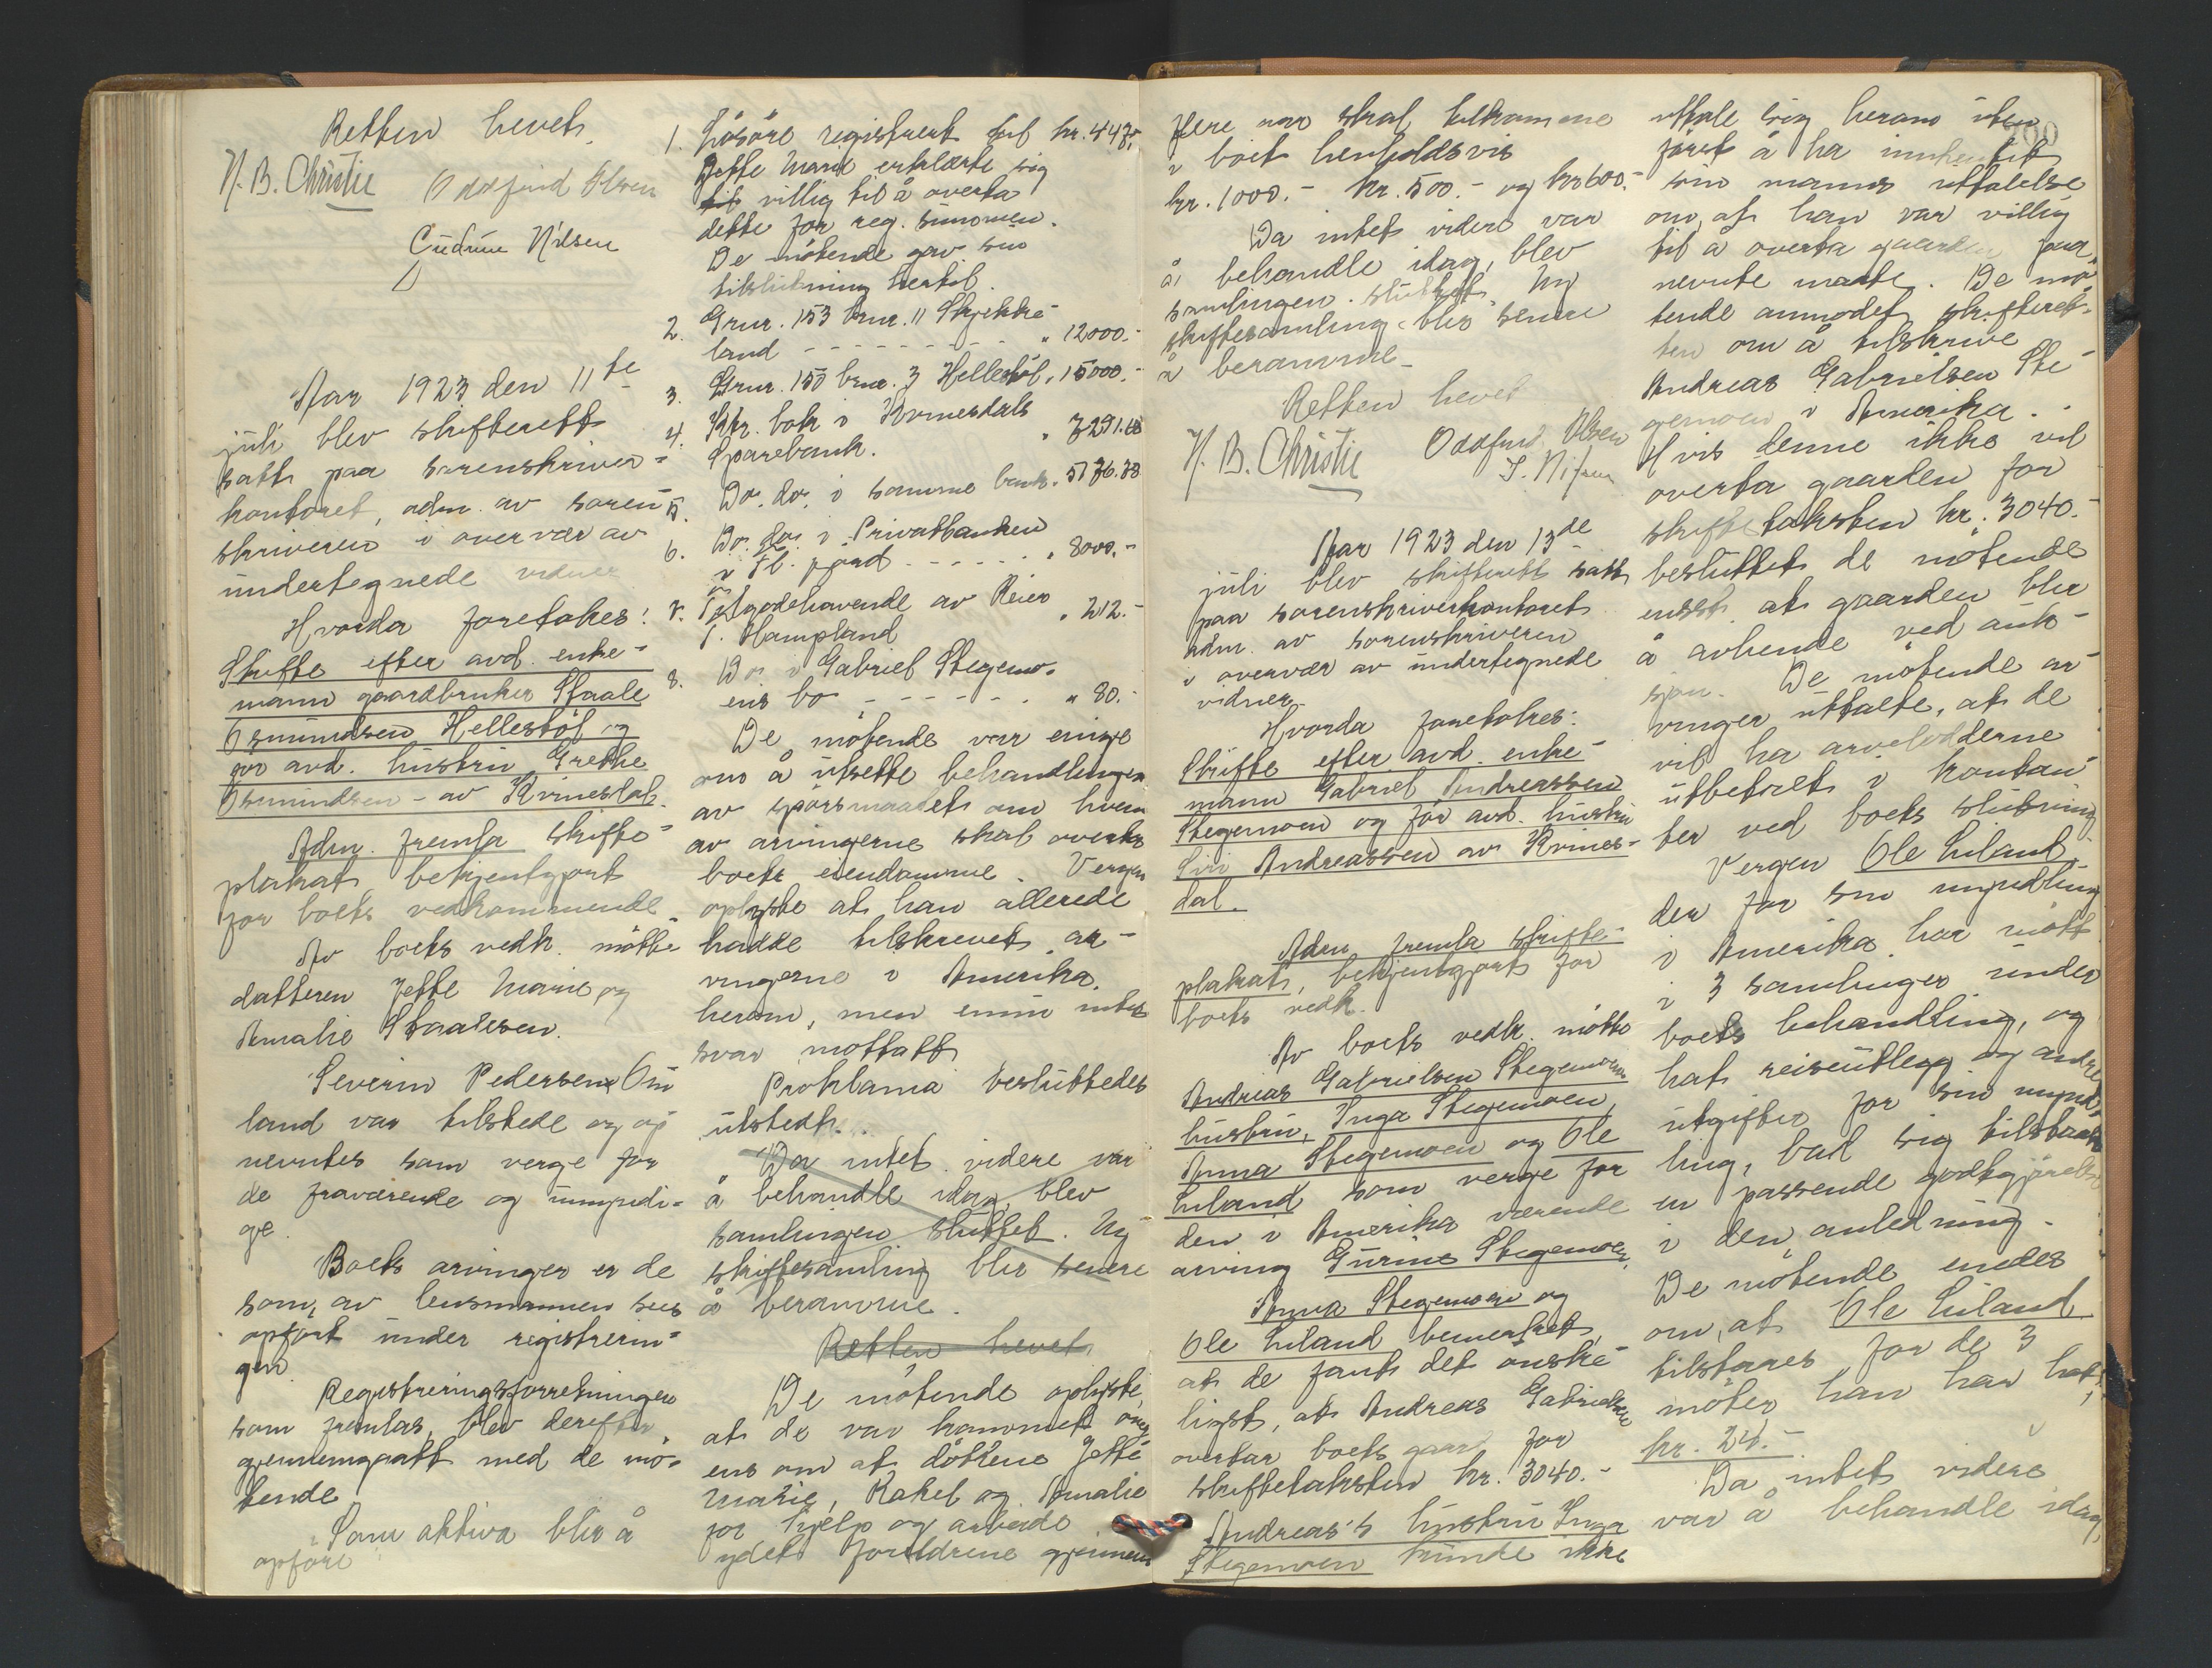 Retten hevet.
N. B. Christie Oddfind Olsen
Gudrun Nilsen
Aar 1923 den 11te
juli blev skifterett
satt paa sorenskriver-
kontoret, adm. av soren-
skriveren i overvær av
undertegnede vidner
Hvorda foretokes:
Skifte efter avd. enke-
mann gaardbruker Staale
Osmundsen Hellestøl og
før avd. hustru Grethe
Osmundsen - av Kvinesdal.
Adm. fremla skifte-
plakat bekjentgjort
for boets vedkommende.
Av boets vedk. møtte
datteren Jette Marie og
Amalie Staalesen.
Severin Pedersen Om
land var tilstede og op
nevntes som verge for
de fraværende og umyndi-
ge.
Boets arvinger er de
som av lensmannen sees
opført under registrerin-
gen.
Registreringsforretningen
som fremlas, blev derefter
gjennemgaatt med de mø-
tende
Som aktiva blir å
opføre
1. Løsøre registrert til kr. 447,-
Jette Marie erklærte sig
villig til å overta
dette for reg. summen.
De møtende gav sin
tilslutning hertil.
2. Grnr. 153 brnr. 11 Skjekke-
land - - - - - - - - - " 12000.-
3. Grnr. 150 brnr. 3 Hellestøl " 15000.-
4. Ktr. bok i Kvinesdals
Sparebank. " 3291.68
5. Do. do. i samme bank " 5736.78
6. Do. do. i Privatbanken
i Fl. fjord - - - - - - " 8000.-
7. Tilgodehavende av Reier
T. Hampland " 212.-
8. Do. i Gabriel Stegemo-
ens bo - - - - - - " 80.-
De møtende var enige
om å utsette behandlingen
av spørsmaalet om hvem
av arvingerne skal overta
boets eiendomme. Vergen
oplyste at han allerede
hadde tilskrevet ar-
vingerne i Amerika
herom, men ennu intet
svar mottatt
Proklama besluttedes
utstedt.
Da intet videre var
å behandle idag, blev
samlingen sluttet. Ny
skiftesamling blir senere
å beramme.
Retten hevet
De møtende oplyste,
at de var kommet over
ens om at døttrene Jette
Marie, Rakel og Amalie
for hjelp og arbeide
ydet foreldrene gjennem
flere aar skal tilkomme
i boet henholdsvis
kr. 1000.- kr. 500.- og kr 600.-
Da intet videre var
å behandle idag, blev
samlingen sluttet. Ny
skiftesamling blir senere
å beramme.
Retten hevet
N. B. Christie Oddfind Olsen
Aar 1923 den 13de
juli blev skifterett satt
paa sorenskriverkontoret
adm. av sorenskriveren
i overvær av undertegnede
vidner.
Hvorda foretokes:
Skifte efter avd. enke-
mann Gabriel Andreassen
Stegemoen og før avd. hustru
Siri Andreassen av Kvines-
dal.
Adm. fremla skifte-
plakat, bekjentgjort for
boets vedk.
Av boets vedk. møtte
Andreas Gabrielsen Stegemoens
hustru, Inga Stegemoen,
Anna Stegemoen og Ole
Luland som verge for
den i Amerika værende
arving Gurine Stegemoen.
Anna Stegemoen og
Ole Luland bemerket,
at de fant det ønske-
ligst, at Andreas Gabrielsen
overtar boets gaard for
skiftetaksten kr. 3040.-
Andreas's hustru Inga
Stegemoen kunde ikke
200
uttale sig herom uten
først å ha innhentet
sin manns uttalelse
om, at han var villig
til å overta gaarden paa
nevnte maate. De mø-
tende anmodet skifteret-
ten om å tilskrive
Andreas Gabrielsen Ste-
gemoen i Amerika.
Hvis denne ikke vil
overta gaarden for
skiftetaksten kr. 3040.-
besluttet de møtende
enst. at gaarden blir
å avhende ved auk-
sjon. De møtende ar-
vinger uttalte, at de
vil ha arvelodderne
utbetalt i kontan-
ter ved boets slutning.
Vergen Ole Luland,
der for sin myndling
i Amerika har møtt
i 3 samlinger under
boets behandling, og
hat reiseutlegg og andre
utgifter for sin mynd-
ling, bad sig tilstaatt
en passende godtgjørelse
i den anledning.
De møtende enedes
om, at Ole Luland
tilstaaes for de 3
møter han har hat,
kr. 24.-
Da intet videre
var å behandle idag,